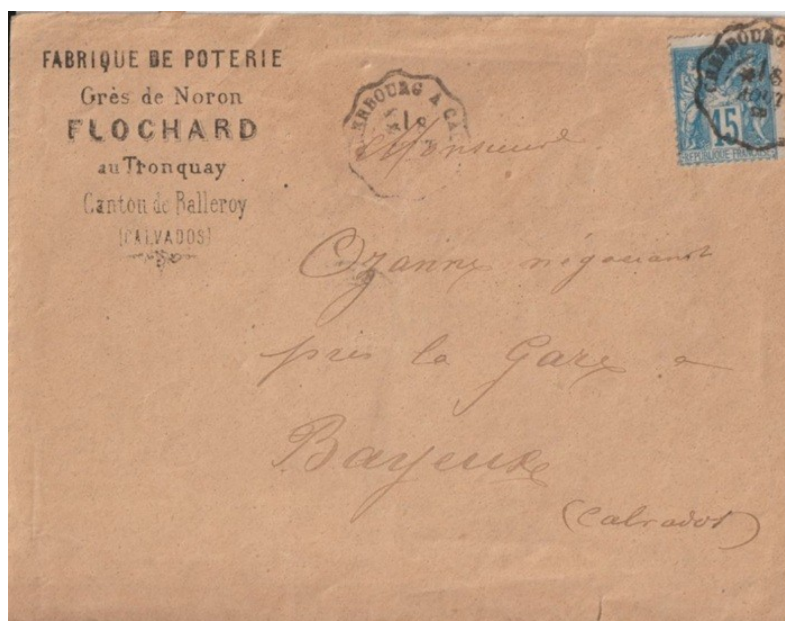 FABRIQUE DE POTERIE
Grès de Noron
FLOCHARD
au Tronquay
Canton de Balleroy
(CALVADOS)
CHERBOURG A CA
18
CHERBOURG
AOUT
15
REPUBLIQUE FRANC
Monsieur
Ozanne négociant
près la Gare a
Bayeux
(Calvados)